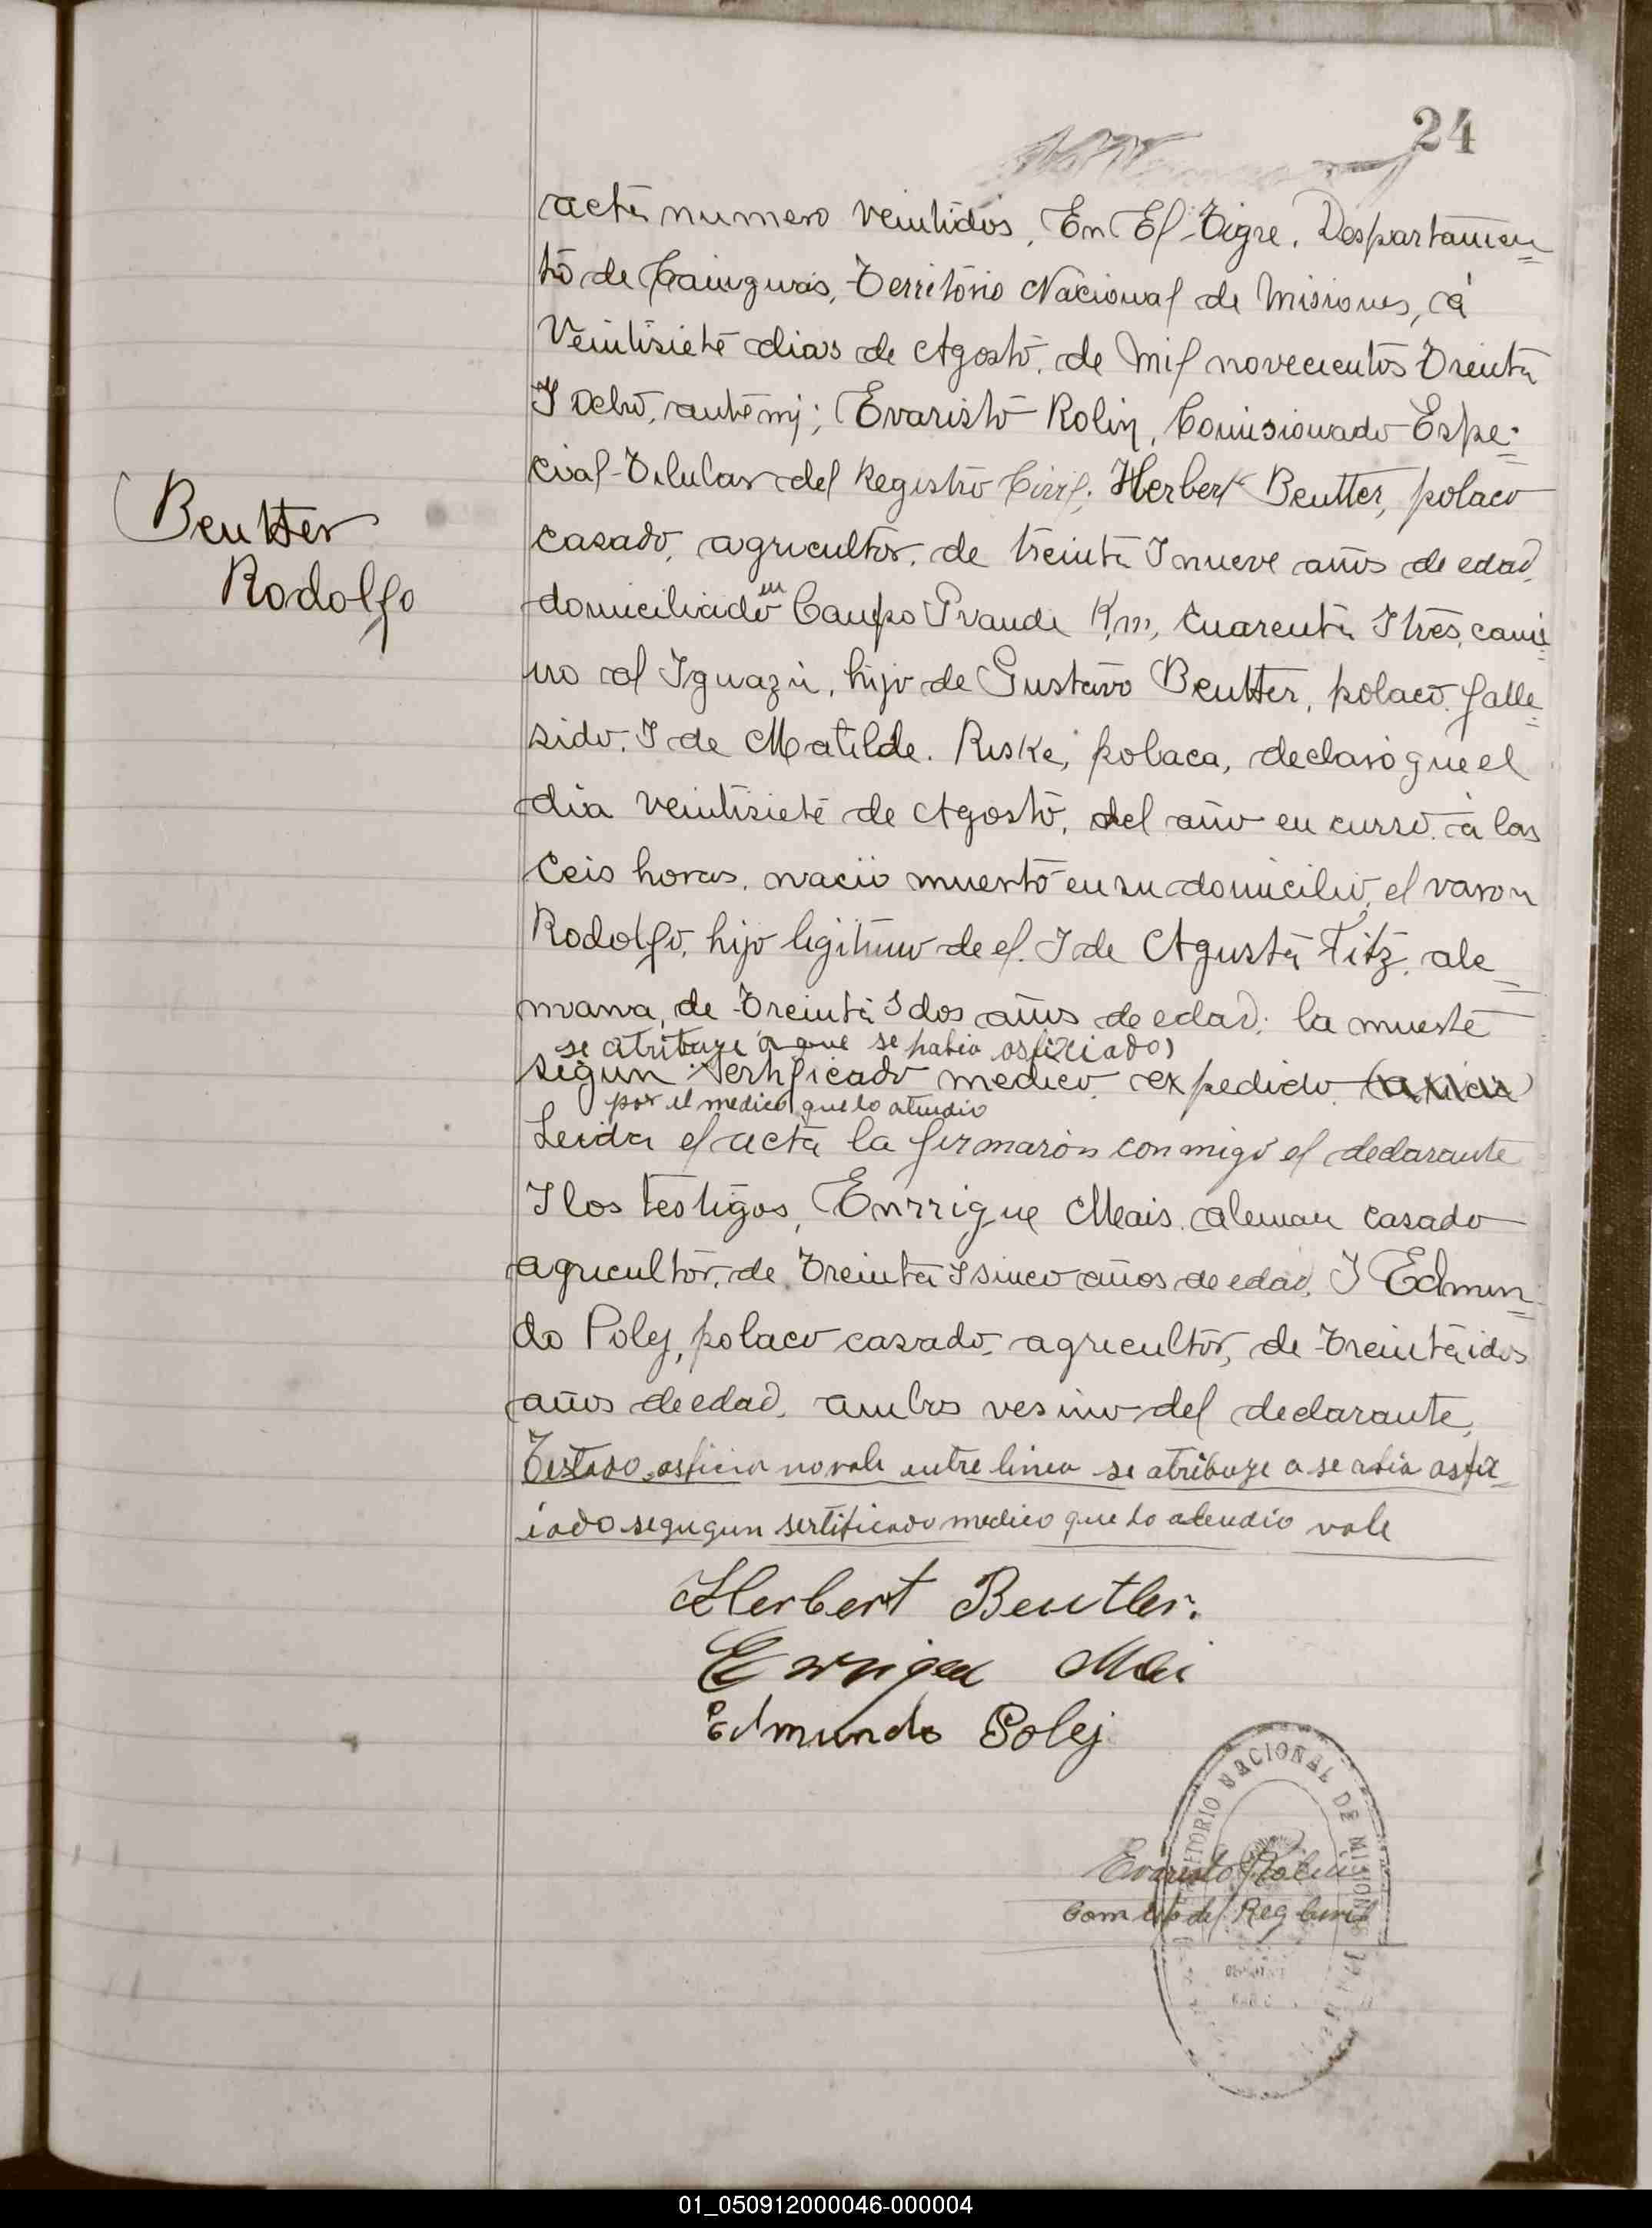 24
acta numero veintidos, En El Tigre, Despartamen=
to de Cainguás, Territorio Nacional de Misiones, á
Veintisiete dias de Agosto, de Mil novecientos Treinta
I Ocho, ante mi; Evaristo Rolin, Comisionado Espe=
cial Titular del Registro Civil, Herbert Beutter, polaco
casado, agricultor, de treinta I nueve años de edad,
en
domiciliado Campo Grande Km, Cuarenta I tres, cami=
no al Iguazú, hijo de Gustavo Beutter, polaco, falle=
sido, I de Matilde. Riske, polaca, declaró que el
dia veintisiete de Agosto, del año en curso, á las
Ceis horas, nació muerto en su domicilio, el varon
Beutter
Rodolfo
Rodolfo, hijo legitimo de el. I de Agusta Titz, ale=
mana, de Treinta I dos años de edad; la muerte
se atribuye a que se habia asficiado,
segun sertificado medico, expedido
por el medico que lo atendio
Leida el acta la firmarón conmigo el declarante
I los testigos, Enrrique Mais, aleman casado
agricultor, de Treinta I sinco años de edad, I Edmun=
do Poley, polaco casado, agricultor, de Treinta i dos
años de edad, ambos vesino del declarante,
Testado, asficia no vale entre linea se atribuye a se abia asfix=
iado segugun sertificado medico que lo atendio vale
Herbert Beutler.
Enrique Mai
Edmundo Polej
TERRITORIO NACIONAL DE MISIONES
Evaristo Rolin
Com del Reg Civil
01_050912000046-000004